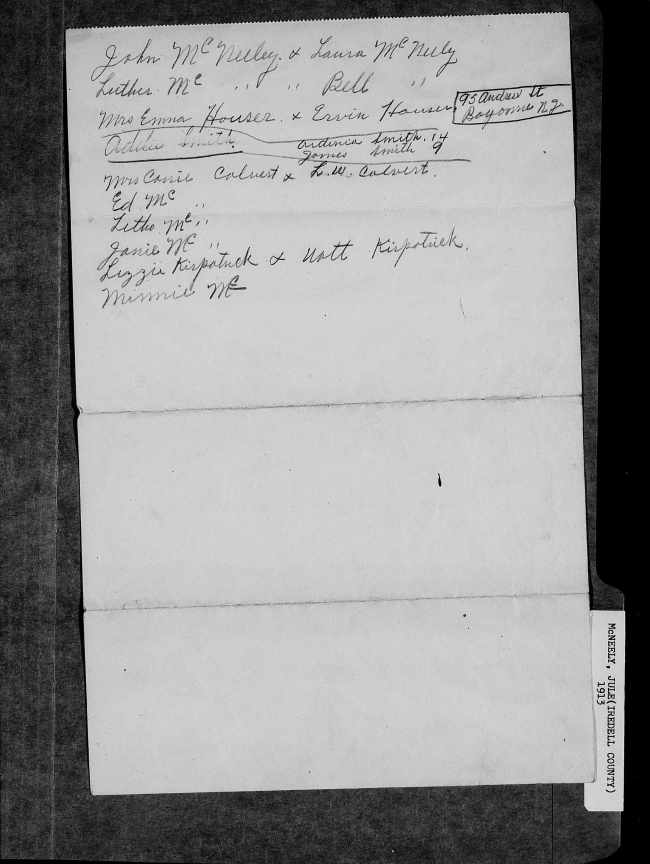 John McNeeley & Laura McNeely
Luther Mc " " Bell "
Mrs Emma Houser & Ervin Houser 95 Andrew St
Bayonne N.J.
Ardinia Smith. 14
James Smith 9
Mrs Carrie Calvert & L.W. Calvert.
Ed Mc "
Litho Mc "
Janie Mc "
Lizzie Kirpatuck & Kirpatuck.
Minnie Mc
McNEELY, JULE(IREDELL COUNTY)
1913